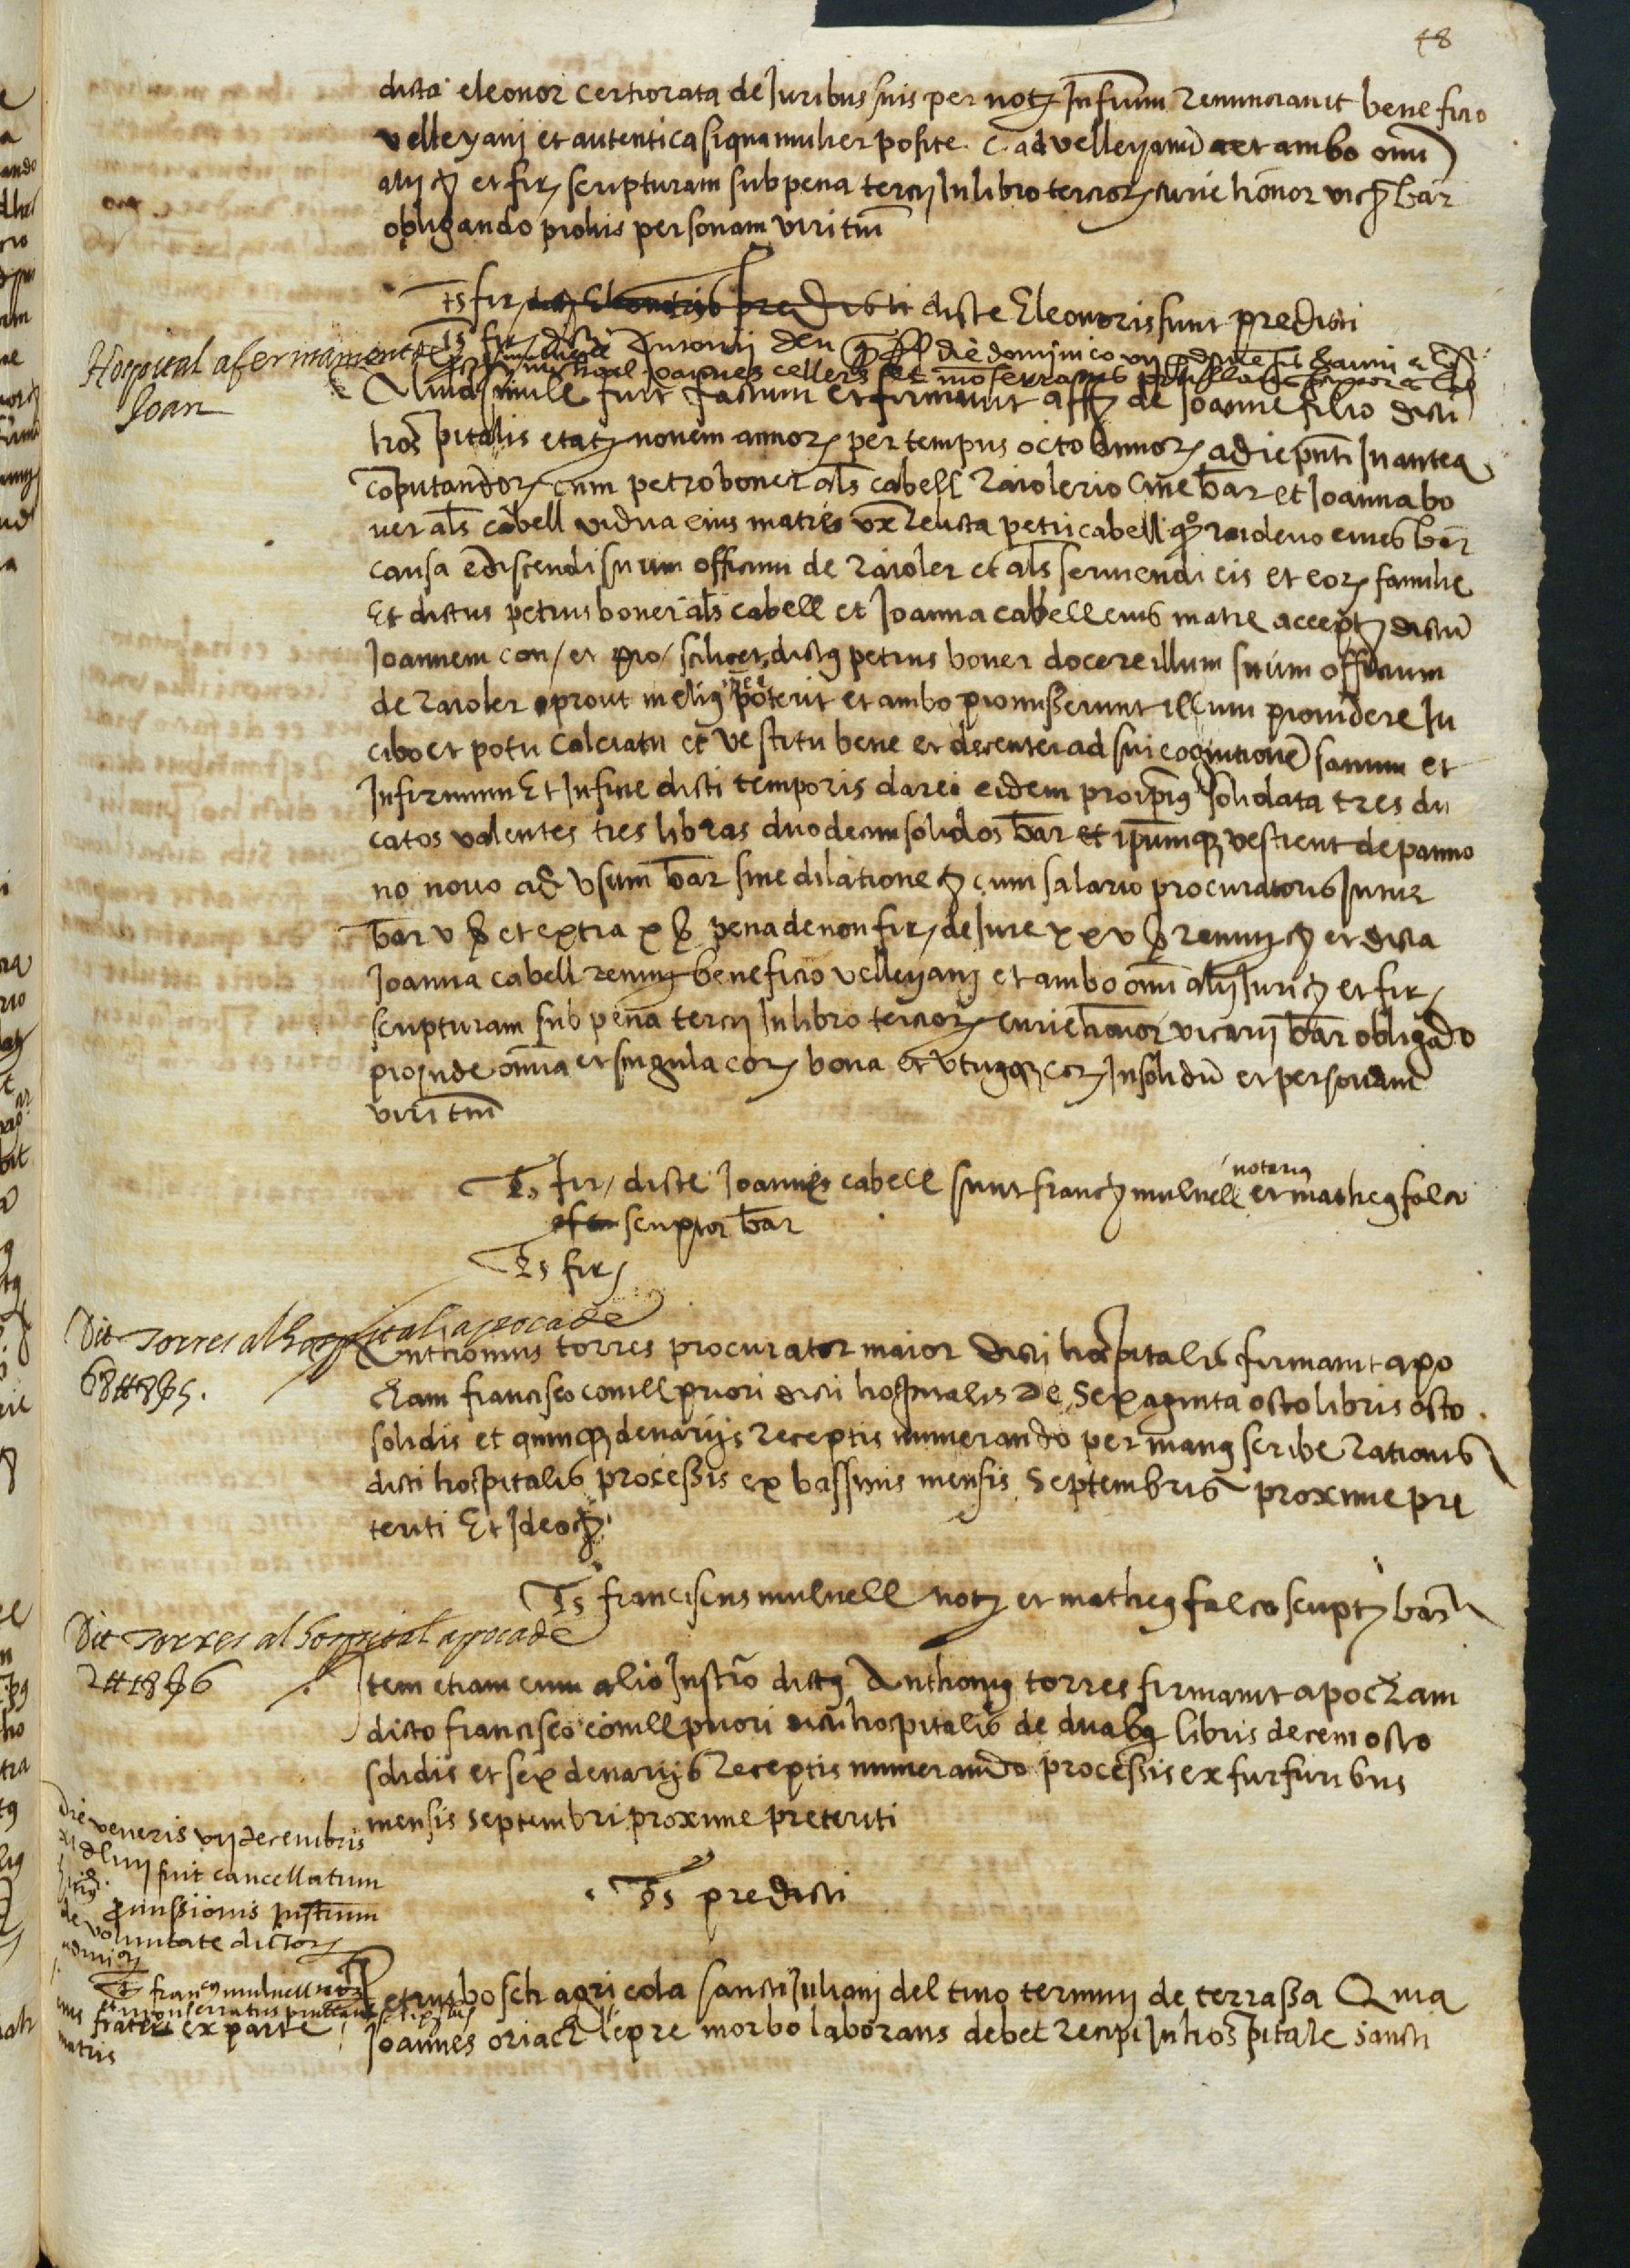 48
dicta eleonor certiorata de Juribus suis per not Infrum Renunciavit beneficio
velleyani et autentica siqua mulier posite C ad velleyanu et ambo omi
alij et fir scripturam sub pena tercij In libro tercior curie honor vic bar
obligando prohis personam viri tm
Ts fir dicte Eleonoris sunt predicti
Ts fir dicti Antonij den die dominico
Hospital afermament de
Joan
Aliud simile fuit factum et firmavit aff de Joanne filio dicti
hospitalis etatis novem annor per tempus octo annor a die pnti In antea
coputandor cum petro boner als cabell Raiolerio cive bar et Joanna bo
ner als cabell vidua eius matre ux relicta petri cabell qo raideno cives bar
causa ediscendi suum officium de Raioler et als serviendi eis et eor familie
Et dictus petrus boner als cabell et Joanna cabell eius mater accept dictu
Joannem con et pro scilicet dictus petrus boner docere illum suum officium
de Raioler prout melius poterit et ambo promisserunt illum providere In
cibo et potu calciatu et vestitu bene et decenter ad sui cognitione sanum et
Infirmum Et In fine dicti temporis darei eidem pro ipius solidata tres du
catos valentes tres libras duodecim solidos bar et ipumque vestient de panno
no novo ad usum bar sine dilatione cum salario procuratoris Intus
bar v s et extra x s pena de non fir de Jure xxv s renun et dicta
Joanna cabell renun beneficio velleyani et ambo omi alij Juri et fir
scripturam sub pena tercij In libro tercior curie honor vicarij bar obligado
proinde omia et singula eor bona et utriusque eor In solidu et personam
viri tm
Ts fir dicte Joanne cabell sunt franc mulnell notarius et matheus falco
scriptor bar
Ts fir
Dit Torres al hospital apoca de
68 ℔ 8 s 5.
Anthonius torres procurator maior dicti hospitalis firmavit apo
cham francisco comll priori dicti hospitalis de Sexaginta octo libris octo
solidis et quinque denarijs Receptis numerando per manus scribe Rationis
dicti hospitalis processis ex bassinis mensis Septembris proxime pre
teriti Et Ideo
Ts franciscus mulnell not et matheus falco script bar
Dit Torres al hospital apoca de
2 ℔ 18 s 6
Item etiam cum alio Instro dictus Anthonius torres firmavit apocham
dicto francisco comll priori dicti hospitalis de duabus libris decem octo
solidis et sex denarijs Receptis numerando processis ex furfuribus
mensis septembri proxime preteriti
Ts predicti
die veneris vij decembris
dliiij fuit cancellatum
promissionis Instrum
de voluntate dictor
Ts franc mulnell not
fratris ex parte
matris
Petrus bosch agricola sancti Juliani del turo termini de terrassa Quia
Joannes oriach lepre morbo laborans debet recipi In hospitale sancti